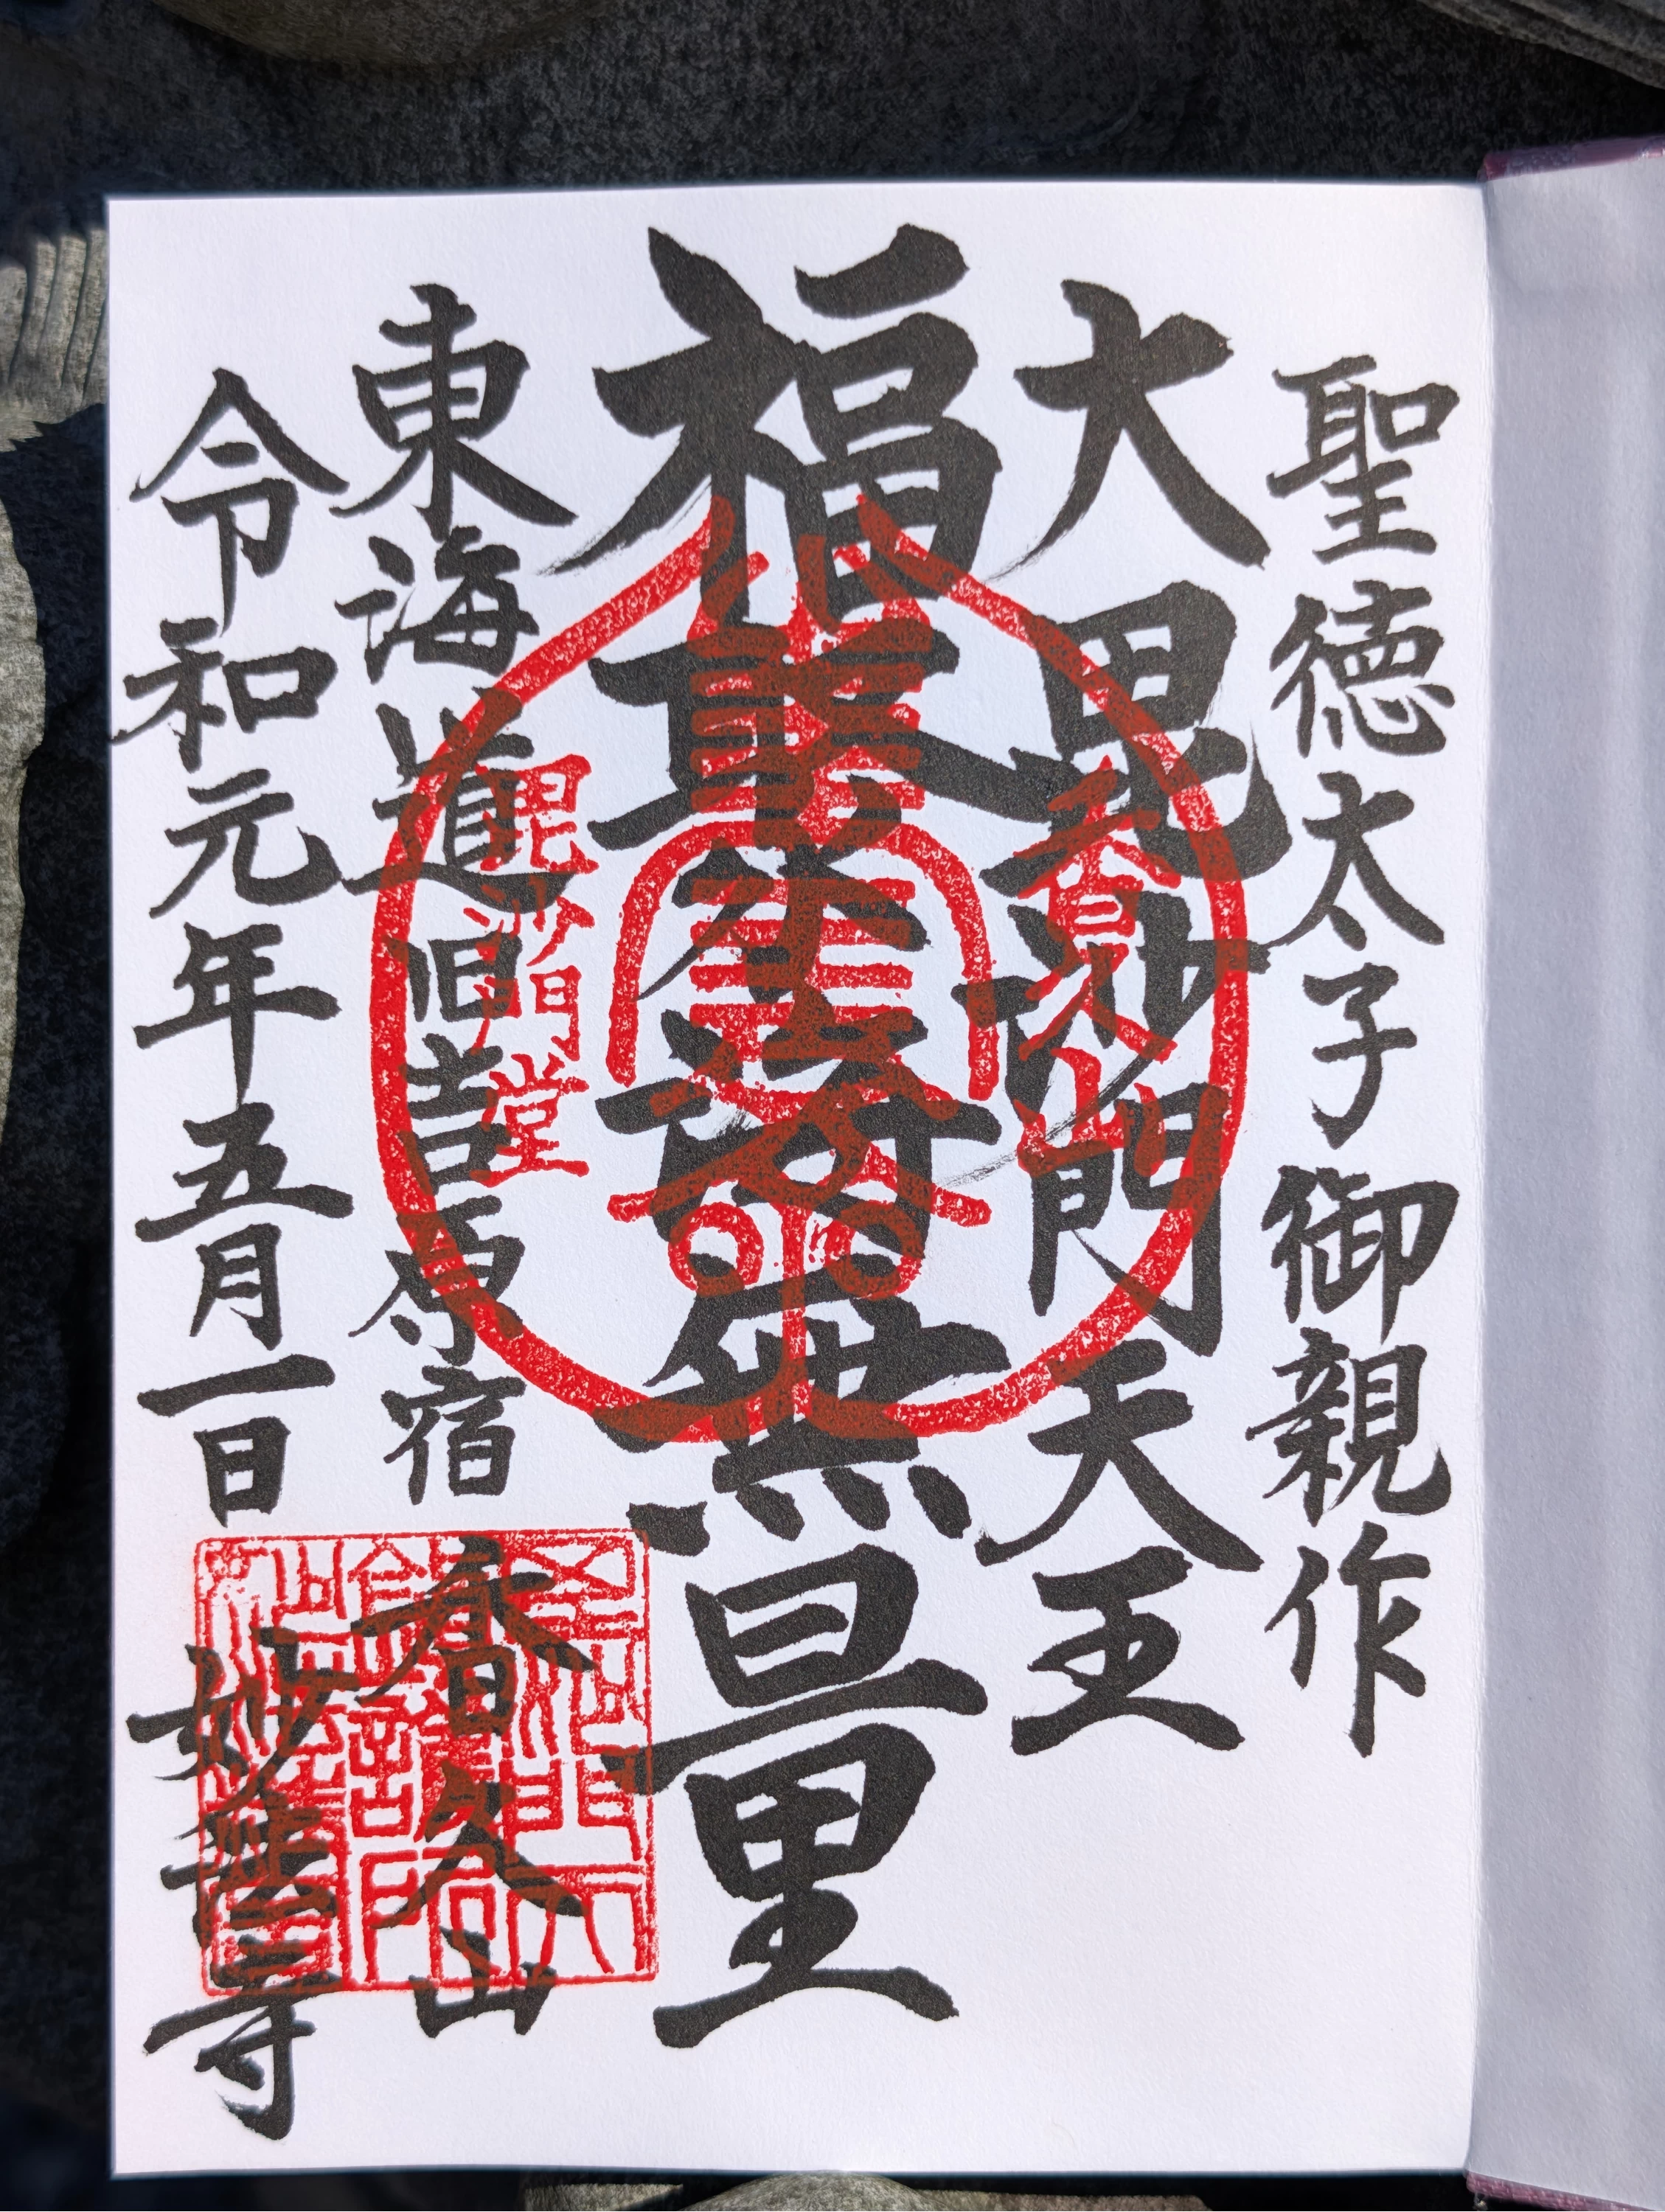 聖徳太子御親作
大毘沙門天王
福聚海無量
東海道旧吉原宿
香久山
令和元年五月一日
妙法寺
香久山
毘沙門堂